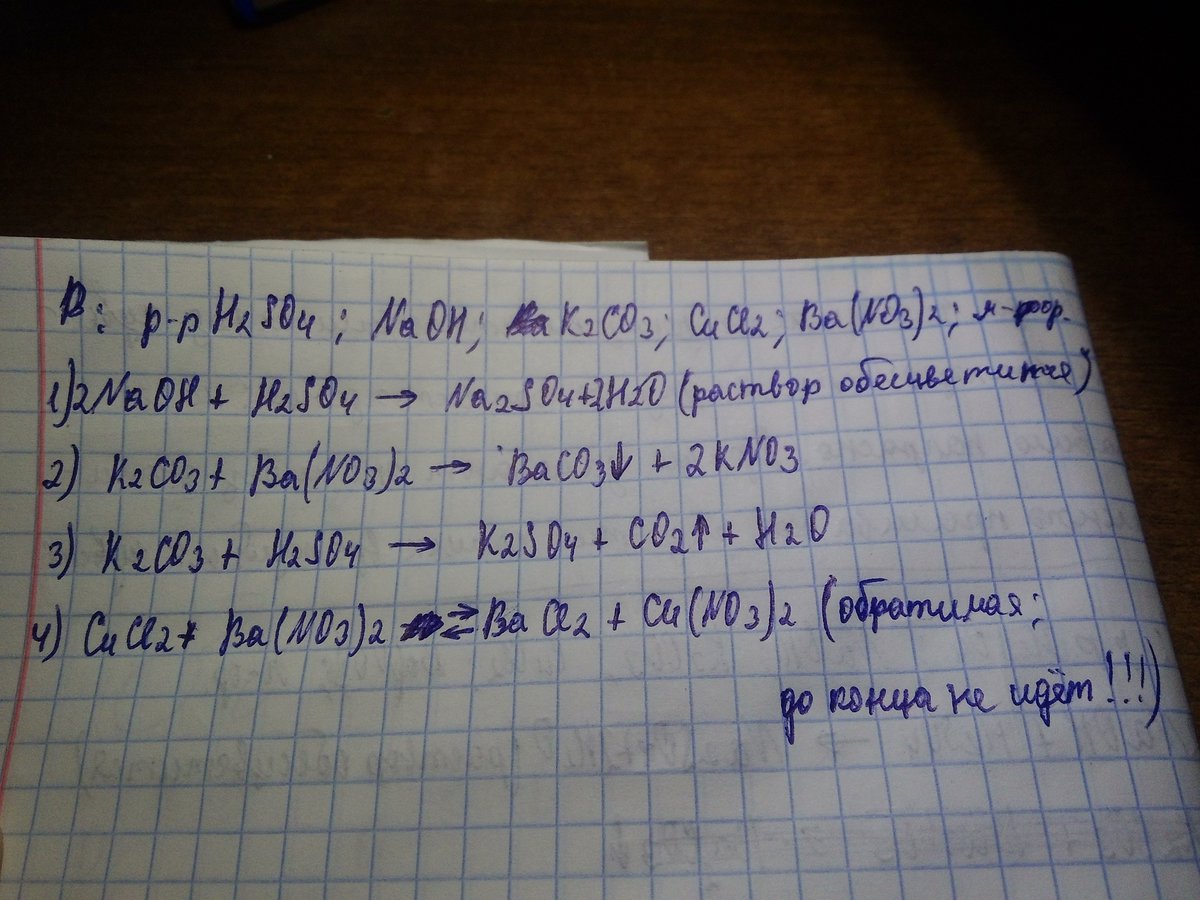 В: р-р H2SO4; NaOH; K2CO3; CuCl2; Ba(NO3)2; м-
1) 2NaOH + H2SO4 → Na2SO4+2H2O (раствор обесцветится)
2) K2CO3 + Ba(NO3)2 → BaCO3↓ + 2KNO3
3) K2CO3 + H2SO4 → K2SO4 + CO2↑ + H2O
4) CuCl2 + Ba(NO3)2 ⇄ BaCl2 + Cu(NO3)2 (обратимая;
до конца не идёт!!!)